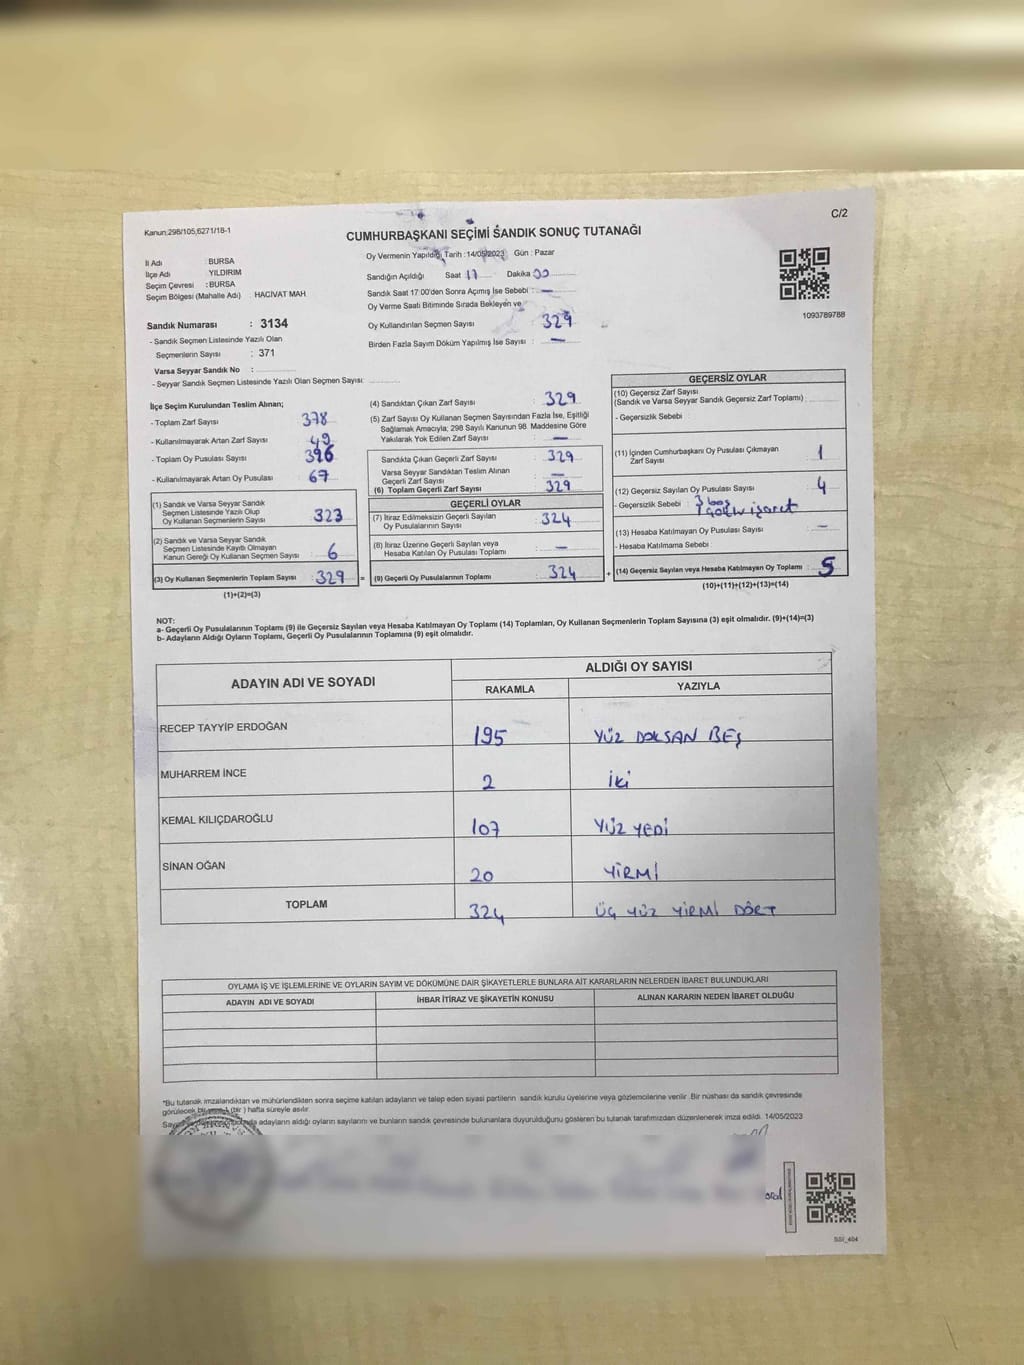 C/2
Kanun:298/105,6271/18-1
CUMHURBAŞKANI SEÇİMİ SANDIK SONUÇ TUTANAĞI
İl Adı : BURSA
İlçe Adı : YILDIRIM
Seçim Çevresi : BURSA
Seçim Bölgesi (Mahalle Adı) HACİVAT MAH
Sandık Numarası : 3134
- Sandık Seçmen Listesinde Yazılı Olan
Seçmenlerin Sayısı : 371
Varsa Seyyar Sandık No :
- Seyyar Sandık Seçmen Listesinde Yazılı Olan Seçmen Sayısı:
Oy Vermenin Yapıldığı Tarih :14/05/2023 Gün : Pazar
Sandığın Açıldığı Saat 17 Dakika 00
Sandık Saat 17:00'den Sonra Açılmış İse Sebebi : —
Oy Verme Saati Bitiminde Sırada Bekleyen ve
Oy Kullandırılan Seçmen Sayısı 329
Birden Fazla Sayım Döküm Yapılmış İse Sayısı : —
1093789788
İlçe Seçim Kurulundan Teslim Alınan;
- Toplam Zarf Sayısı 378
- Kullanılmayarak Artan Zarf Sayısı 49
- Toplam Oy Pusulası Sayısı 396
- Kullanılmayarak Artan Oy Pusulası 67
(1) Sandık ve Varsa Seyyar Sandık
Seçmen Listesinde Yazılı Olup
Oy Kullanan Seçmenlerin Sayısı 323
(2) Sandık ve Varsa Seyyar Sandık
Seçmen Listesinde Kayıtlı Olmayan
Kanun Gereği Oy Kullanan Seçmen Sayısı 6
(3) Oy Kullanan Seçmenlerin Toplam Sayısı : 329 =
(1)+(2)=(3)
(4) Sandıktan Çıkan Zarf Sayısı : 329
(5) Zarf Sayısı Oy Kullanan Seçmen Sayısından Fazla İse, Eşitliği
Sağlamak Amacıyla; 298 Sayılı Kanunun 98. Maddesine Göre
Yakılarak Yok Edilen Zarf Sayısı : —
Sandıkta Çıkan Geçerli Zarf Sayısı : 329
Varsa Seyyar Sandıktan Teslim Alınan
Geçerli Zarf Sayısı : —
(6) Toplam Geçerli Zarf Sayısı : 329
GEÇERLİ OYLAR
(7) İtiraz Edilmeksizin Geçerli Sayılan
Oy Pusulalarının Sayısı : 324
(8) İtiraz Üzerine Geçerli Sayılan veya
Hesaba Katılan Oy Pusulası Toplamı : —
(9) Geçerli Oy Pusulalarının Toplamı : 324 +
GEÇERSİZ OYLAR
(10) Geçersiz Zarf Sayısı
(Sandık ve Varsa Seyyar Sandık Geçersiz Zarf Toplamı) :
- Geçersizlik Sebebi :
(11) İçinden Cumhurbaşkanı Oy Pusulası Çıkmayan
Zarf Sayısı : 1
(12) Geçersiz Sayılan Oy Pusulası Sayısı : 4
- Geçersizlik Sebebi : 3 boş
1 işaret
(13) Hesaba Katılmayan Oy Pusulası Sayısı : —
- Hesaba Katılmama Sebebi :
(14) Geçersiz Sayılan veya Hesaba Katılmayan Oy Toplamı : 5
(10)+(11)+(12)+(13)=(14)
NOT:
a- Geçerli Oy Pusulalarının Toplamı (9) ile Geçersiz Sayılan veya Hesaba Katılmayan Oy Toplamı (14) Toplamları, Oy Kullanan Seçmenlerin Toplam Sayısına (3) eşit olmalıdır. (9)+(14)=(3)
b- Adayların Aldığı Oyların Toplamı, Geçerli Oy Pusulalarının Toplamına (9) eşit olmalıdır.
ADAYIN ADI VE SOYADI ALDIĞI OY SAYISI
RAKAMLA YAZIYLA
RECEP TAYYİP ERDOĞAN 195 YÜZ DOKSAN BEŞ
MUHARREM İNCE 2 İKİ
KEMAL KILIÇDAROĞLU 107 YÜZ YEDİ
SİNAN OĞAN 20 YİRMİ
TOPLAM 324 ÜÇ YÜZ YİRMİ DÖRT
OYLAMA İŞ VE İŞLEMLERİNE VE OYLARIN SAYIM VE DÖKÜMÜNE DAİR ŞİKAYETLERLE BUNLARA AİT KARARLARIN NELERDEN İBARET BULUNDUKLARI
ADAYIN ADI VE SOYADI İHBAR İTİRAZ VE ŞİKAYETİN KONUSU ALINAN KARARIN NEDEN İBARET OLDUĞU
*Bu tutanak imzalandıktan ve mühürlendikten sonra seçime katılan adayların ve talep eden siyasi partilerin sandık kurulu üyelerine veya gözlemcilerine verilir. Bir nüshası da sandık çevresinde
görülecek bir (bir ) hafta süreyle asılır.
adayların aldığı oyların sayılarını ve bunların sandık çevresinde bulunanlara duyurulduğunu gösteren bu tutanak tarafımızdan düzenlenerek imza edildi. 14/05/2023
SSI_404